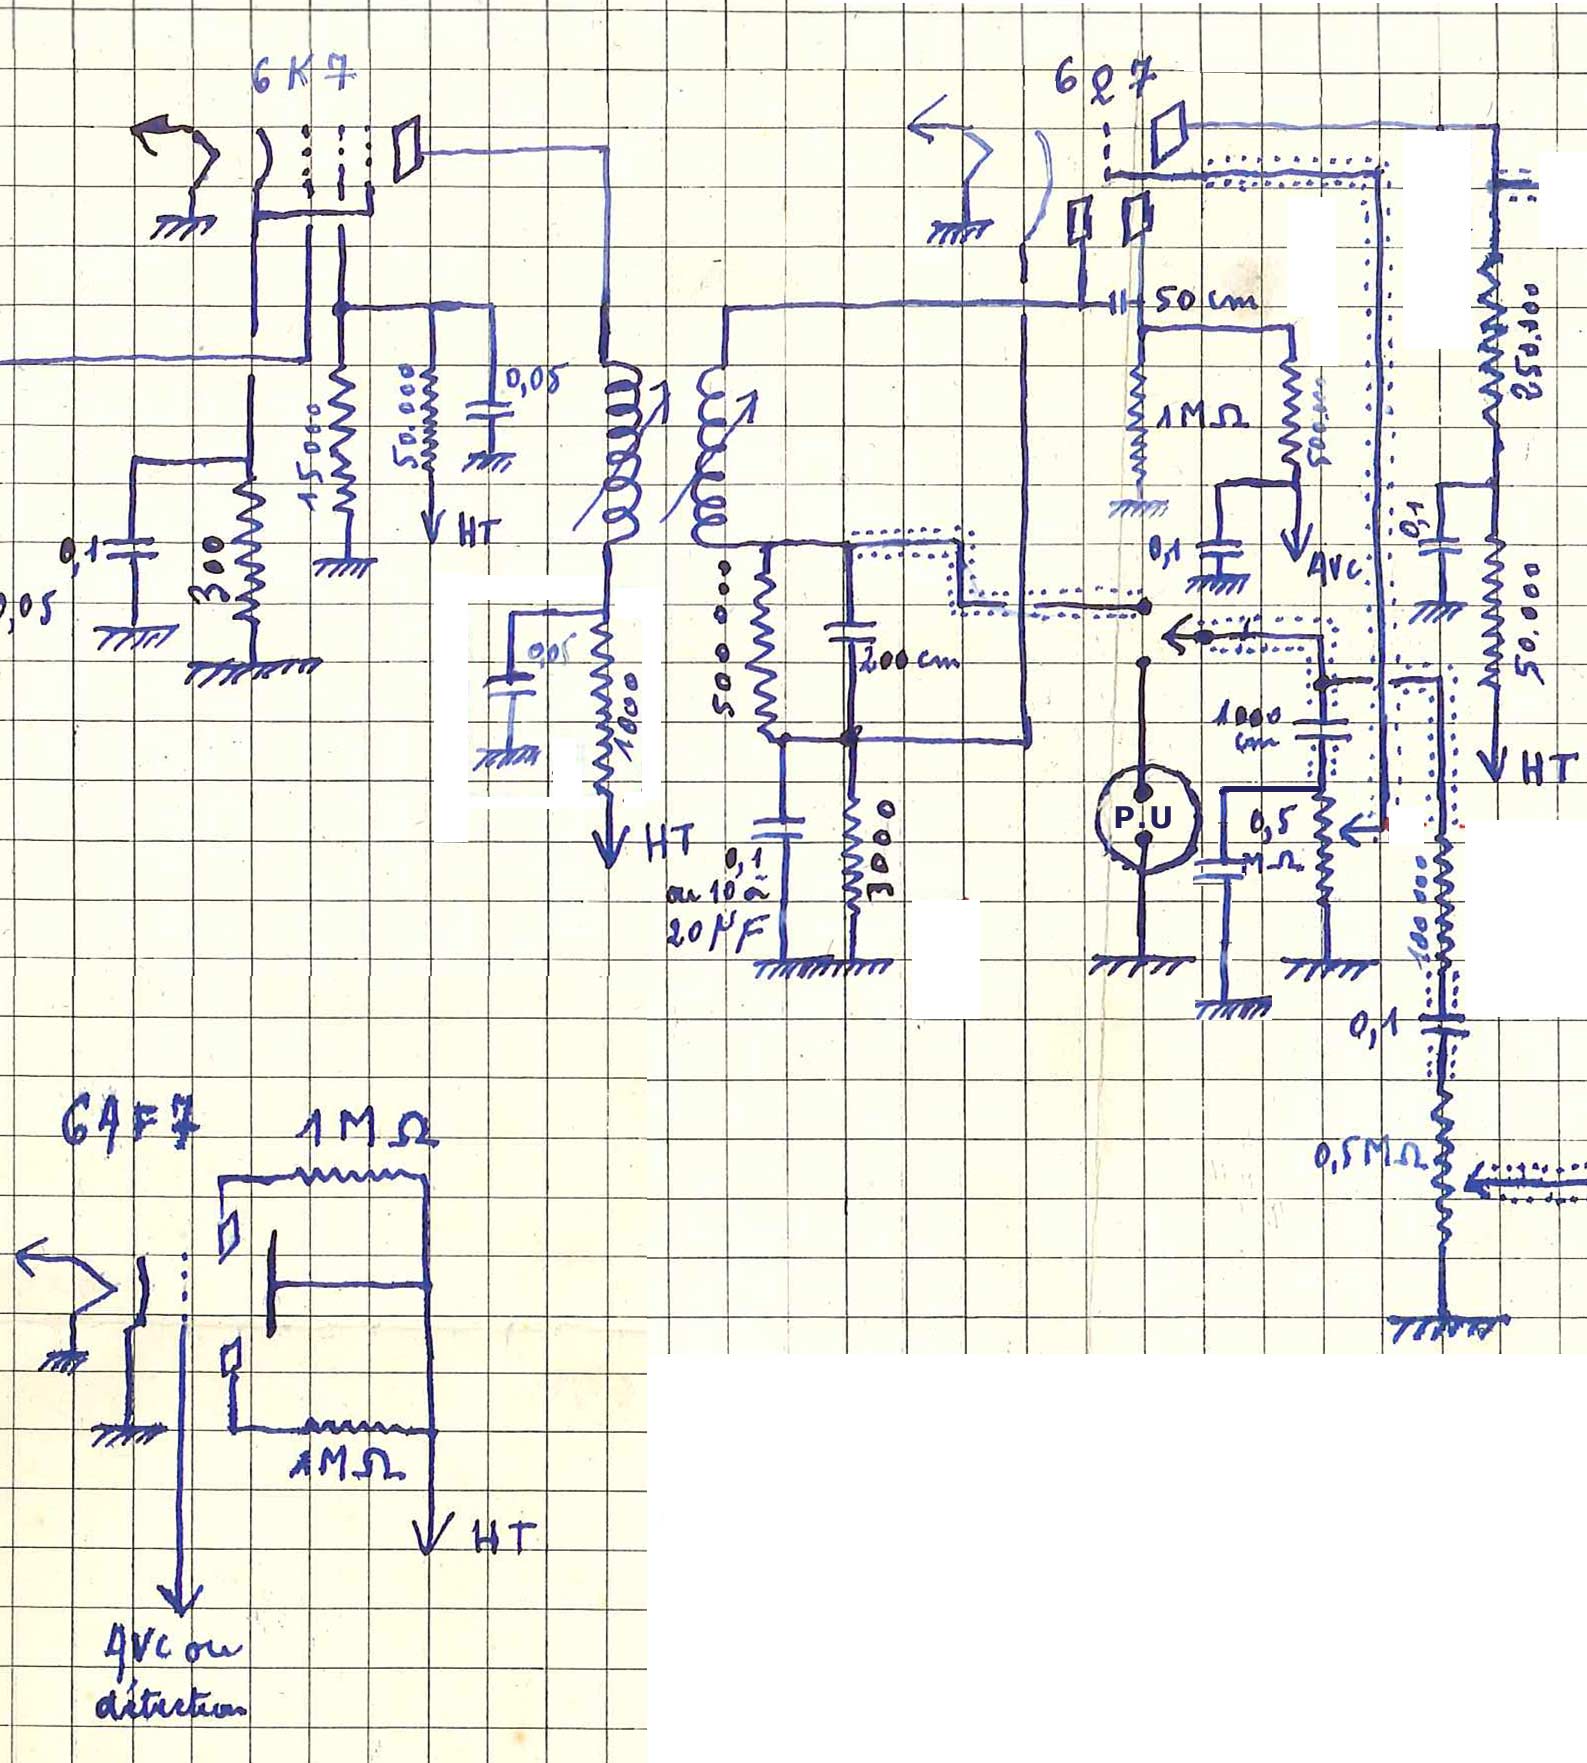 6K7
6Q7
50 cm
250.000
0,05
15000
50.000
1MΩ
HT
0,1
300
0,1
AVC
0,1
,05
500000
200 cm
50.000
0,05
1000
1000
cm
HT
P.U
0,5
MΩ
HT
0,1
ou 10 à
20 µF
3000
100000
0,1
6AF7
1MΩ
0,5MΩ
1MΩ
HT
AVC ou
détection